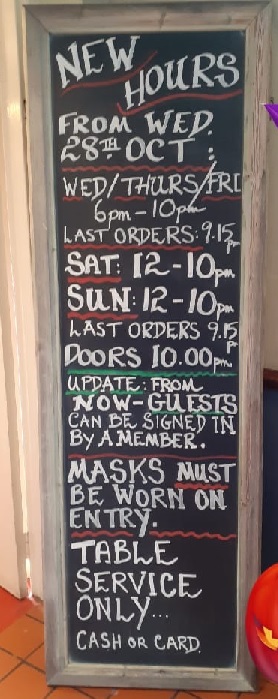 NEW
HOURS
FROM WED.
28TH OCT :
WED/THURS/FRI
6pm-10pm
LAST ORDERS: 9.15pm
SAT: 12-10pm
SUN: 12-10pm
LAST ORDERS 9.15P
DOORS 10.00pm
UPDATE: FROM
NOW- GUESTS
CAN BE SIGNED IN
BY A MEMBER.
MASKS MUST
BE WORN ON
ENTRY.
TABLE
SERVICE
ONLY...
CASH OR CARD.